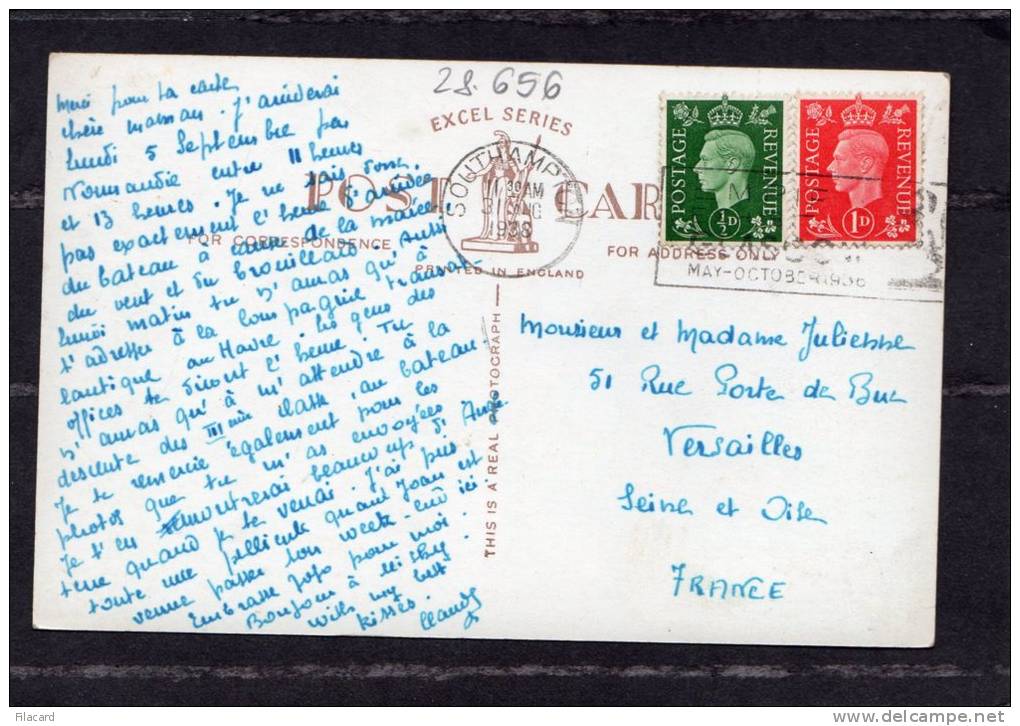 28.656
EXCEL SERIES
POST CAR
FOR CORRESPONDENCE
FOR ADDRESS ONLY
PRINTED IN ENGLAND
THIS IS A REAL PHOTOGRAPH
SOUTHAMP
11 30 AM
31 AUG
1938
POSTAGE REVENUE
½D
POSTAGE REVENUE
1D
MAY-OCTOBER 1938
Merci pour ta carte
chère maman. J'arriverai
lundi 5 Septembre par
Normandie entre 11 heures
et 13 heures. Je ne sais donc
pas exactement l'heure d'arrivée
du bateau à cause de la marée
du vent et du brouillard. Aussi
lundi matin tu n'auras qu'à
t'adresser à la Compagnie Transat-
lantique au Havre. Les gens des
offices te diront l'heure. Tu
n'auras qu'à m'attendre à la
descente des III class du bateau
Je te remercie également pour les
photos que tu m'as envoyées
Je t'en montrerai beaucoup d'Angle
terre quand je te verrai. J'ai pris
toute une pellicule quand Joan est
venue passer son week-end ici.
Embrasse Jojo pour moi.
Bonjour à
With my best
kisses.
Monsieur et Madame Julienne
51 Rue Porte de Buc
Versailles
Seine et Oise
FRANCE
Filacard
delcampe.net